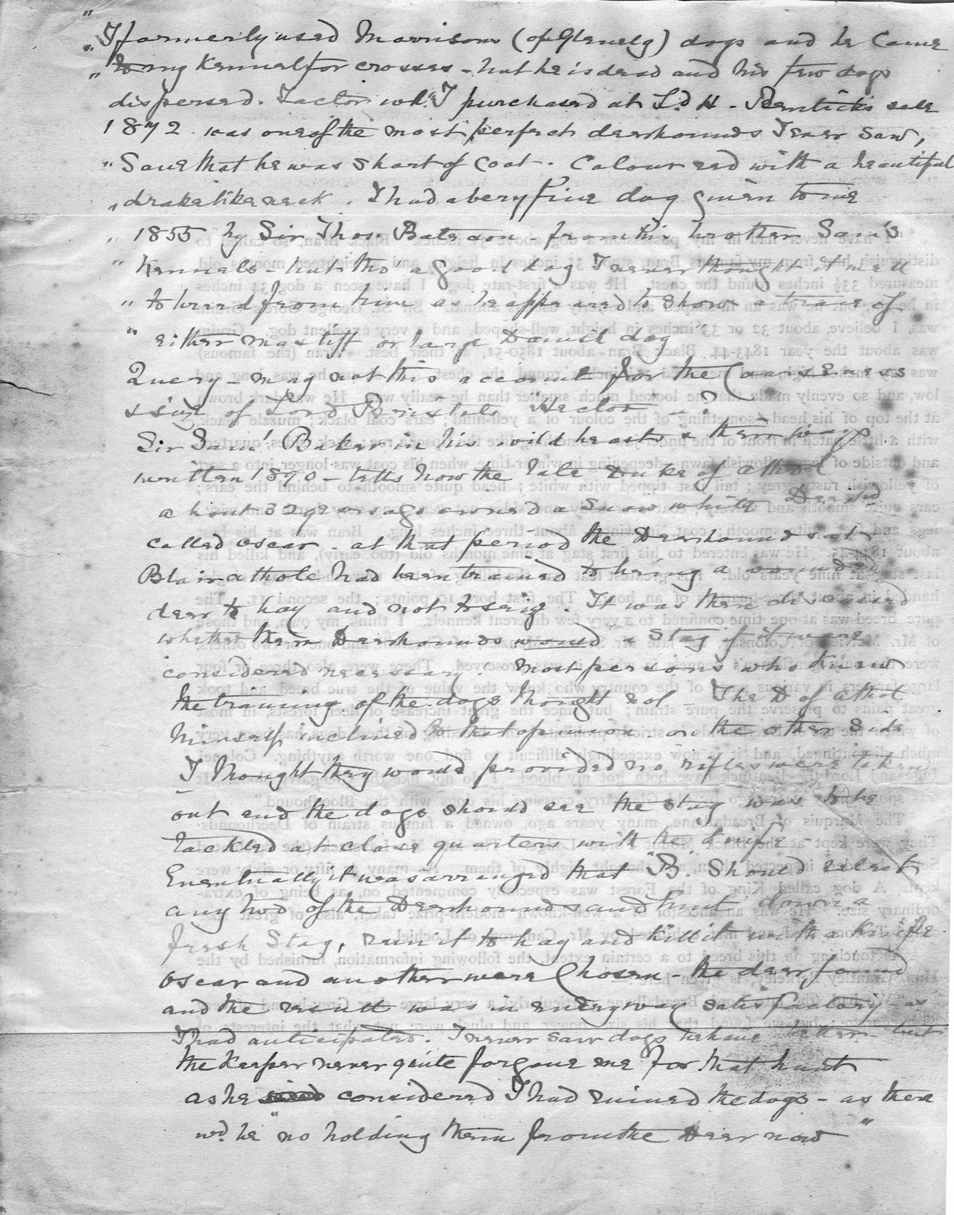 "I formerly used Morrison (of Glenelg) dogs and he came
" to my Kennel for crosses – but he is dead and his few dogs
dispersed. Factor wh: I purchased at Ld H. Bentick's sale
1872 was one of the most perfect deerhounds I ever saw,
" Save that he was short of coat. Colour red with a beautiful
" drake like neck. I had a very fine dog given to me
" 1855 by Sir Thos Bateson – from his brother Sam's
" Kennels – but tho a good dog I never thought it well
" to breed from him as he appeared to show a trace of
" either mastiff or large Danish dog
Query – may not this account for the Coarseness
& size of Lord Hector – ?
Sir Saml Baker in his wild beasts & their ways
written 1890 – tells how the late Duke of Athol
about 32 years ago owned a Snow white Deerhd
called Oscar. at that period the Deerhounds at
Blair athole had been trained to bring a wounded
deer to bay and not to seize. It was then discussed
whether them Deerhounds would a Stag if
considered necessary. Most persons who knew
the training of the dogs thought not. The D of Athol
himself inclined to that opinion on the other side
I thought they would provided no rifles were taken
out and the dogs should see the stag was to be
tackled at close quarters with the knife –
Eventually it was arranged that B. Should select
any two of the Deerhounds and hunt down a
fresh Stag, run it to bay and kill it with a knife
Oscar and another were Chosen – the deer found
and the result was in every way satisfactory as
I had anticipated. I never saw dogs behave better but
the keeper never quite forgave me for that hunt
as he considered I had ruined the dogs – as there
wd be "no holding them from the Deer now"